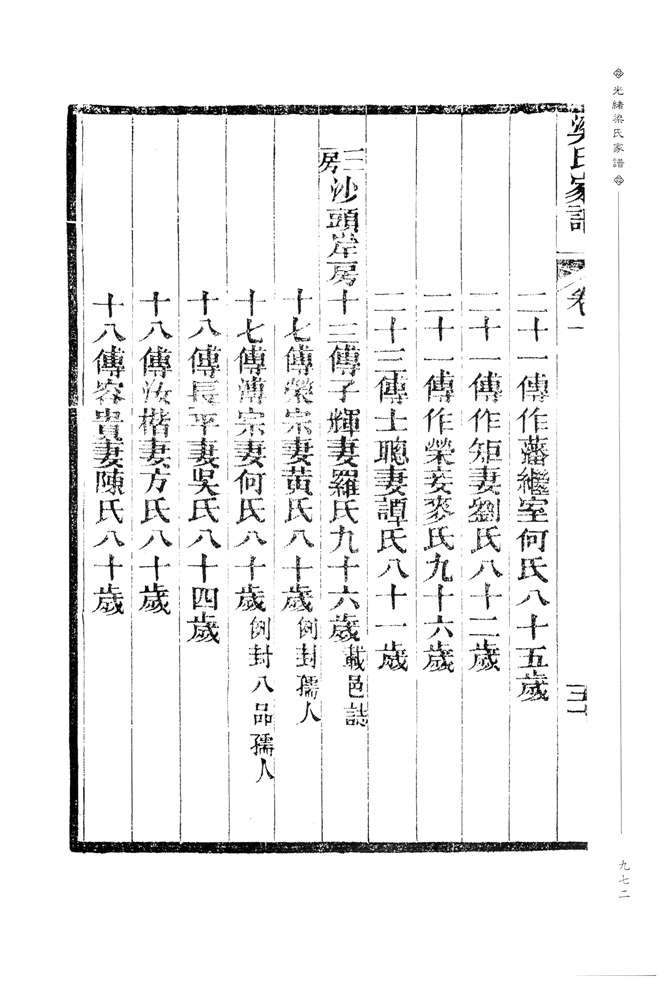 光緒梁氏家譜
九七二
梁氏家譜 卷一
二十一傳作藩繼室何氏八十五歲
二十一傳作矩妻劉氏八十二歲
二十一傳作榮妾麥氏九十六歲
二十三傳士聰妻譚氏八十一歲
三房沙頭岸房十三傳子輝妻羅氏九十六歲載邑誌
十七傳榮宗妻黃氏八十歲例封孺人
十七傳溥宗妻何氏八十歲例封八品孺人
十八傳長平妻吳氏八十四歲
十八傳汝楷妻方氏八十歲
十八傳容貴妻陳氏八十歲